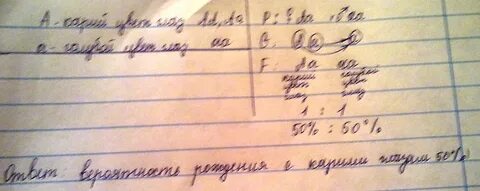 А - карий цвет глаз АА, Аа
а - голубой цвет глаз аа
Р: ♀ Аа х ♂ аа
G: А а а
F: Аа аа
карий голубой
цвет цвет
глаз глаз
1 : 1
50% : 50%
Ответ: вероятность рождения с карими глазами 50%